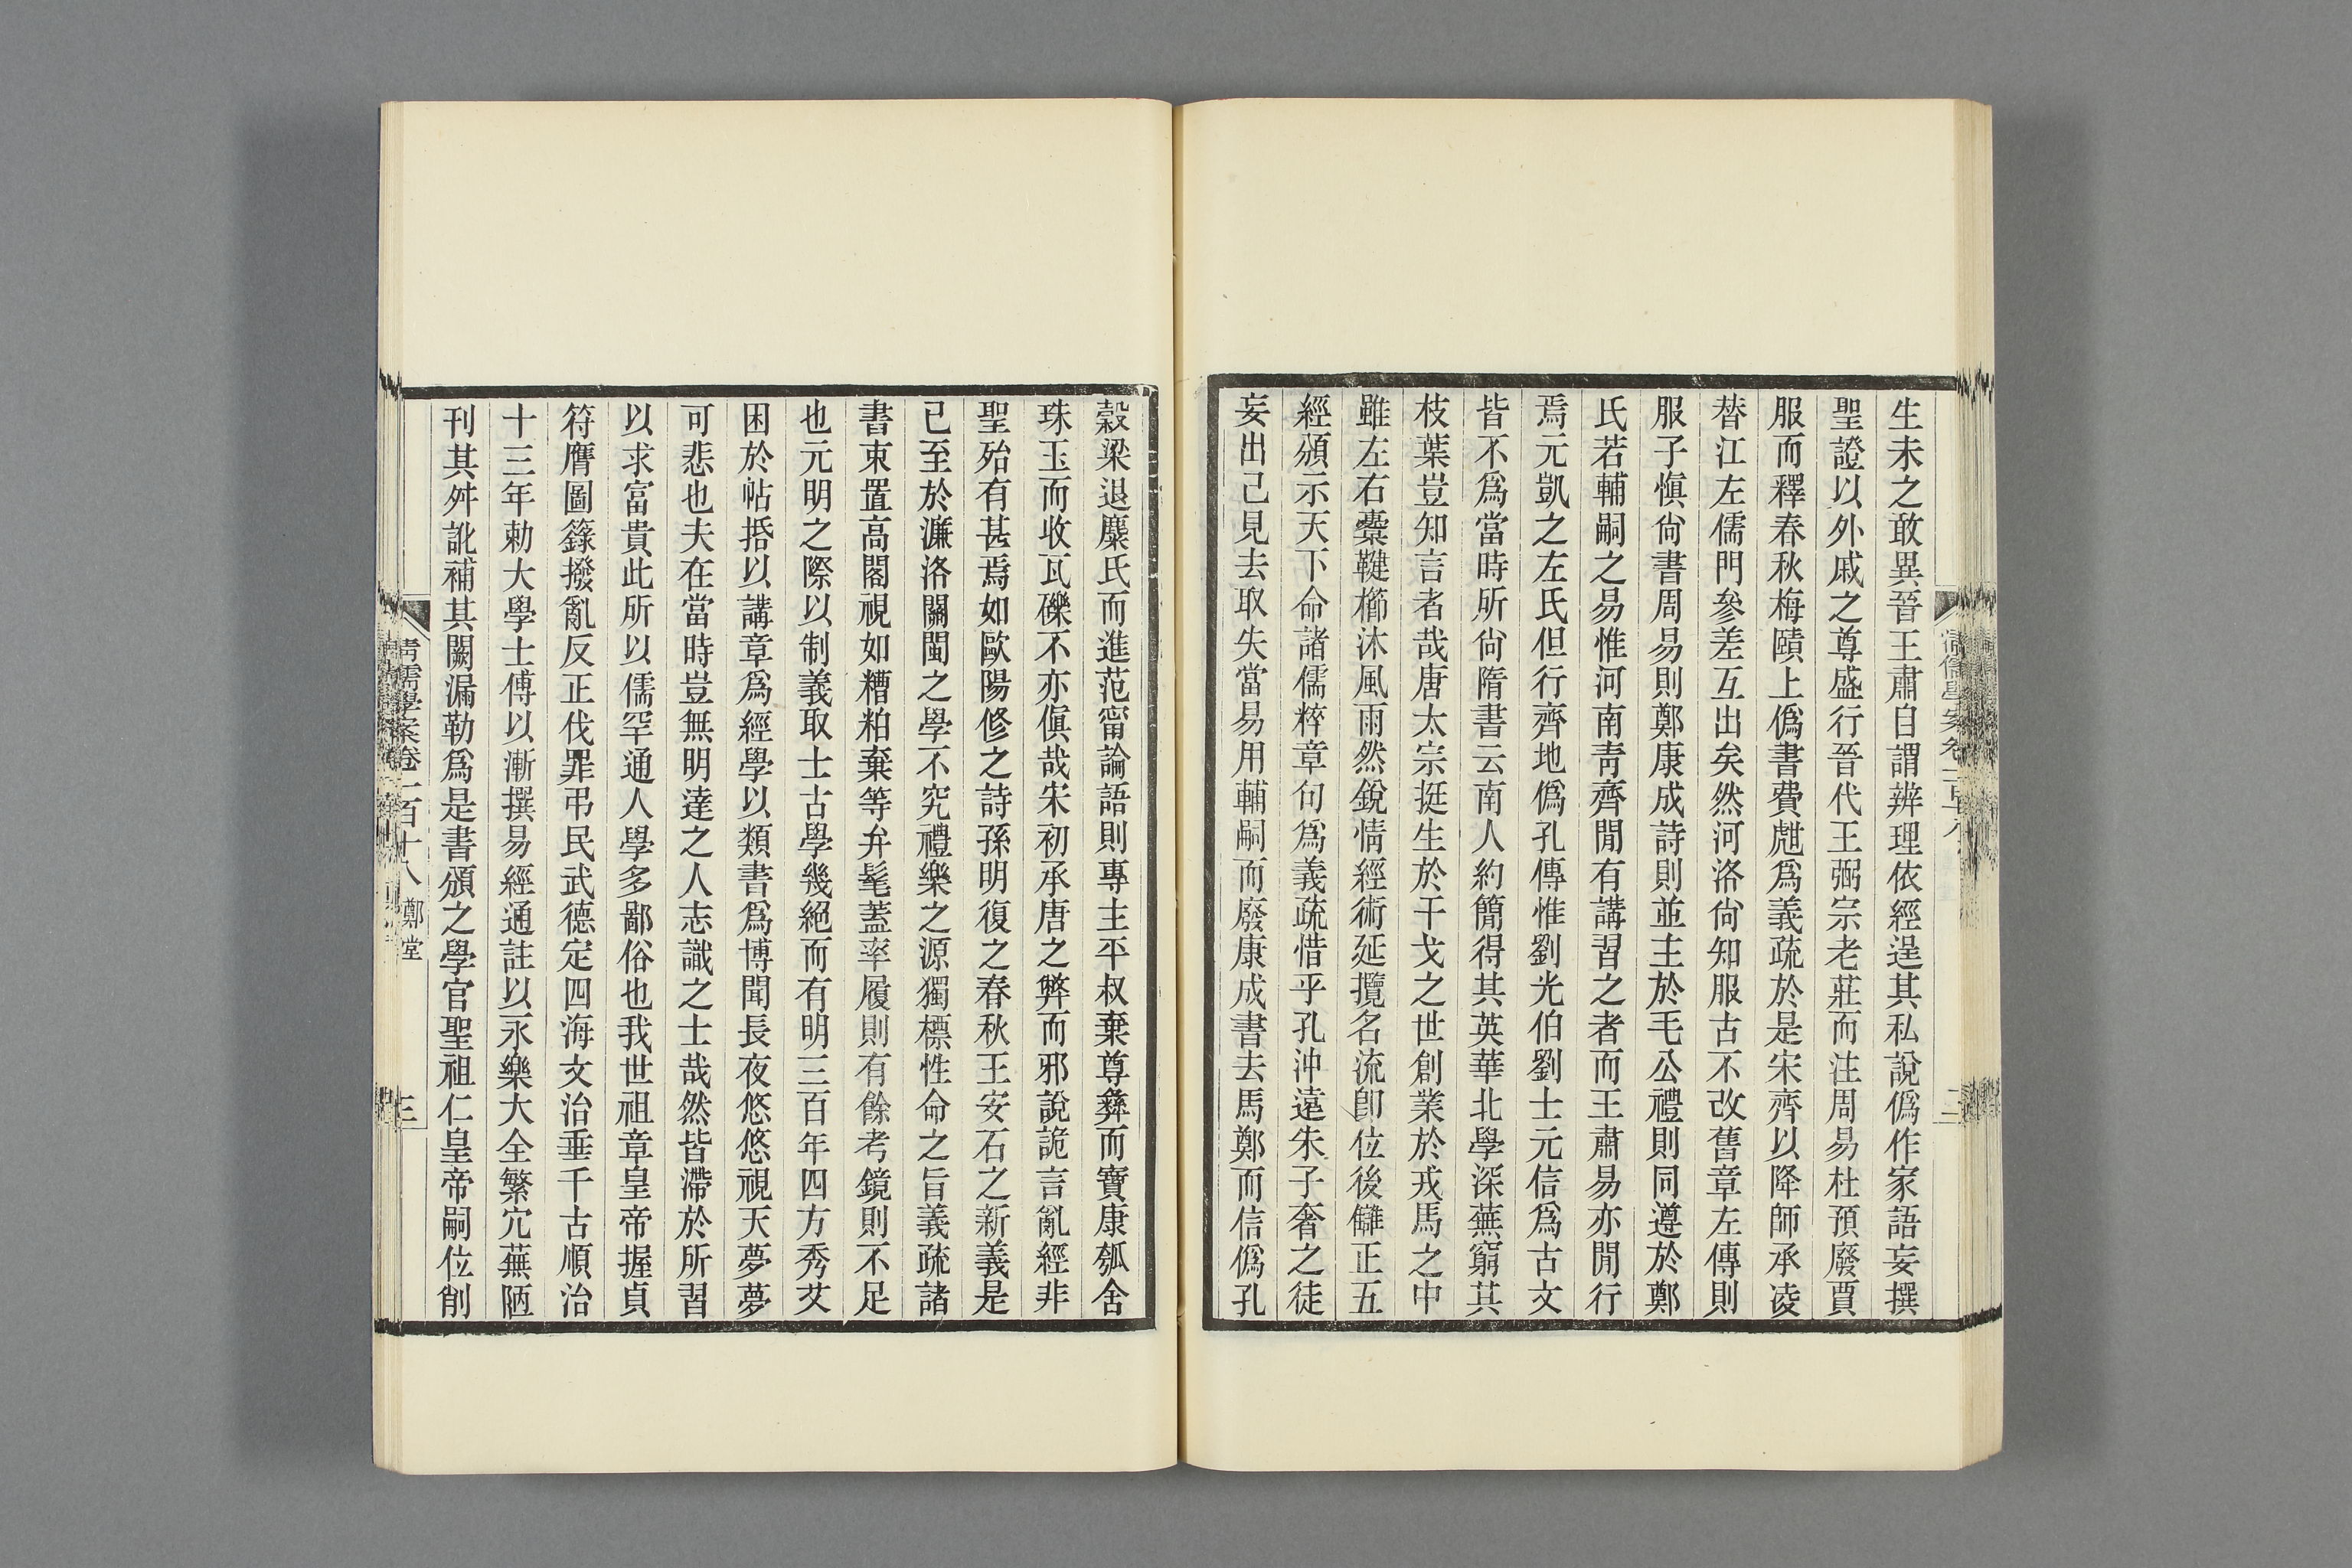 生未之敢異晉王肅自謂辨理依經逞其私說僞作家語妄撰
聖證以外戚之尊盛行晉代王弼宗老莊而注周易杜預廢賈
服而釋春秋梅賾上僞書費甝爲義疏於是宋齊以降師承凌
替江左儒門參差互出矣然河洛尙知服古不改舊章左傳則
服子愼尙書周易則鄭康成詩則並主於毛公禮則同遵於鄭
氏若輔嗣之易惟河南靑齊閒有講習之者而王肅易亦閒行
焉元凱之左氏但行齊地僞孔傳惟劉光伯劉士元信爲古文
皆不爲當時所尙隋書云南人約簡得其英華北學深蕪窮其
枝葉豈知言者哉唐太宗挺生於干戈之世創業於戎馬之中
雖左右櫜鞬櫛沐風雨然銳情經術延攬名流卽位後讎正五
經頒示天下命諸儒粹章句爲義疏惜乎孔沖遠朱子奢之徒
妄出己見去取失當易用輔嗣而廢康成書去馬鄭而信僞孔
穀梁退麋氏而進范甯論語則專主平叔棄尊彝而寶康瓠舍
珠玉而收瓦礫不亦傎哉宋初承唐之弊而邪說詭言亂經非
聖殆有甚焉如歐陽修之詩孫明復之春秋王安石之新義是
已至於濂洛關閩之學不究禮樂之源獨標性命之旨義疏諸
書束置高閣視如糟粕棄等弁髦蓋率履則有餘考鏡則不足
也元明之際以制義取士古學幾絕而有明三百年四方秀艾
困於帖括以講章爲經學以類書爲博聞長夜悠悠視天夢夢
可悲也夫在當時豈無明達之人志識之士哉然皆滯於所習
以求富貴此所以儒罕通人學多鄙俗也我世祖章皇帝握貞
符膺圖籙撥亂反正伐罪弔民武德定四海文治垂千古順治
十三年勅大學士傅以漸撰易經通註以永樂大全繁冗蕪陋
刊其舛訛補其闕漏勒爲是書頒之學官聖祖仁皇帝嗣位削
清儒學案卷一百十八 鄭堂
三